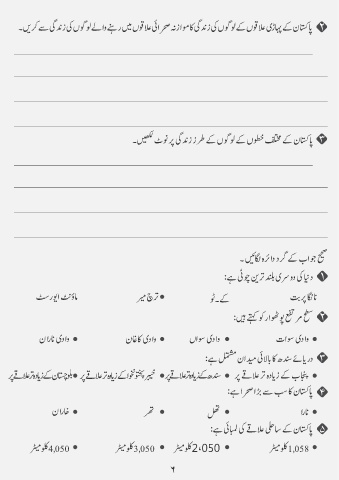 ۲ پاکستان کے پہاڑی علاقوں کے لوگوں کی زندگی کا موازنہ صحرائی علاقوں میں رہنے والے لوگوں کی زندگی سے کریں۔
۳ پاکستان کے مختلف خطوں کے لوگوں کے طرز زندگی پر نوٹ لکھیں۔
صحیح جواب کے گرد دائرہ لگائیں۔
۱ دنیا کی دوسری بلند ترین چوٹی ہے:
نانگا پربت کے۔ٹو ● ترچ میر ماؤنٹ ایورسٹ
۲ سطح مرتفع پوٹھوار کو کہتے ہیں:
● وادی سوات ● وادی سواں ● وادی کاغان ● وادی ناران
۳ دریائے سندھ کا بالائی میدان مشتمل ہے:
● پنجاب کے زیادہ تر علاقے پر ● سندھ کے زیادہ تر علاقے پر ● خیبر پختونخوا کے زیادہ تر علاقے پر ● بلوچستان کے زیادہ تر علاقے پر
۴ پاکستان کا سب سے بڑا صحرا ہے:
● نارا ● تھل ● تھر ● خاران
۵ پاکستان کے ساحلی علاقے کی لمبائی ہے:
● 1,058 کلومیٹر ● 2،050 کلومیٹر ● 3,050 کلومیٹر ● 4,050 کلومیٹر
۶